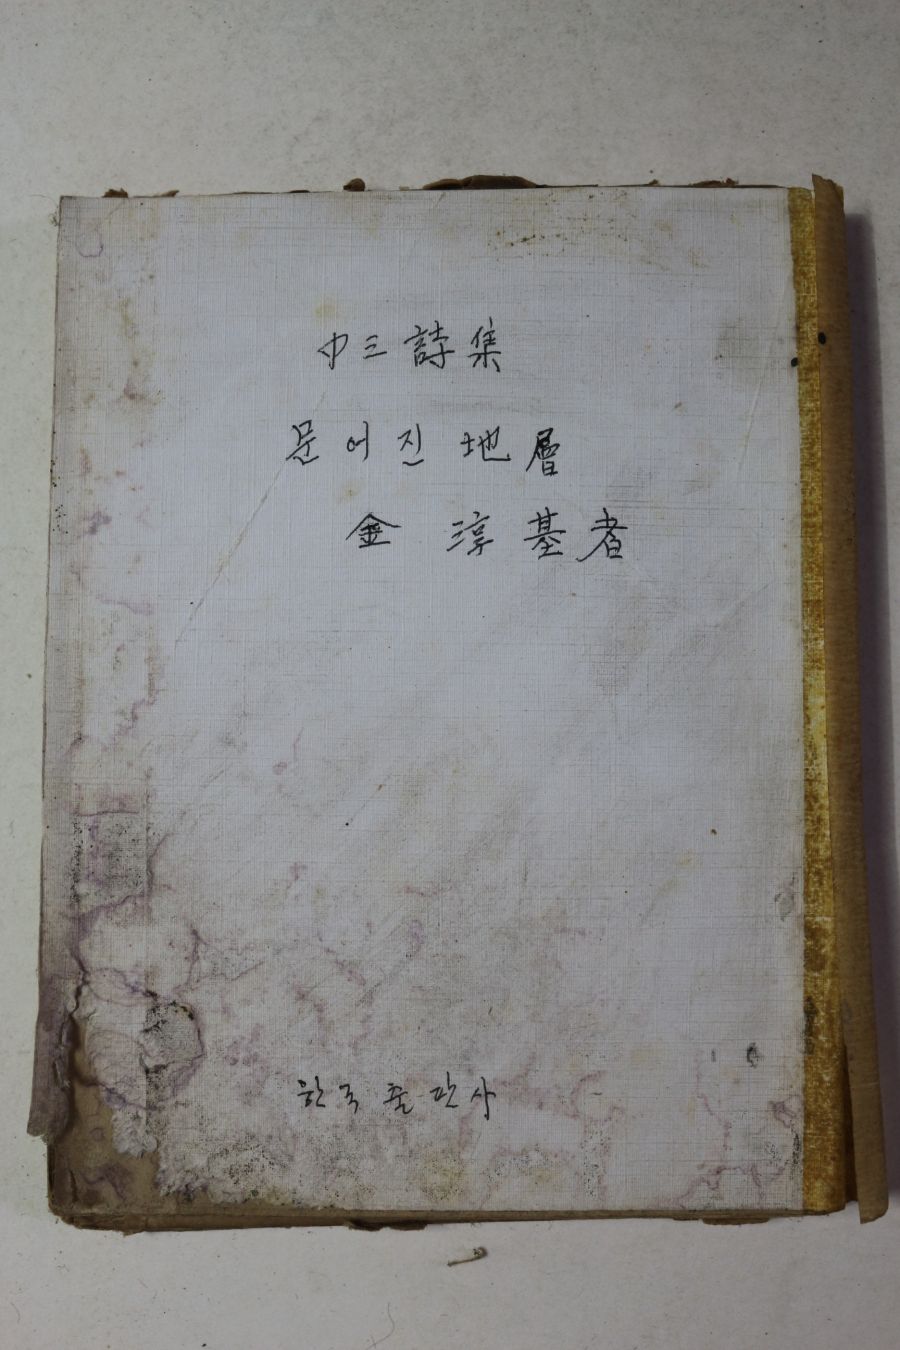 中三詩集
문어진 地層
金 淳基者
한국출판사